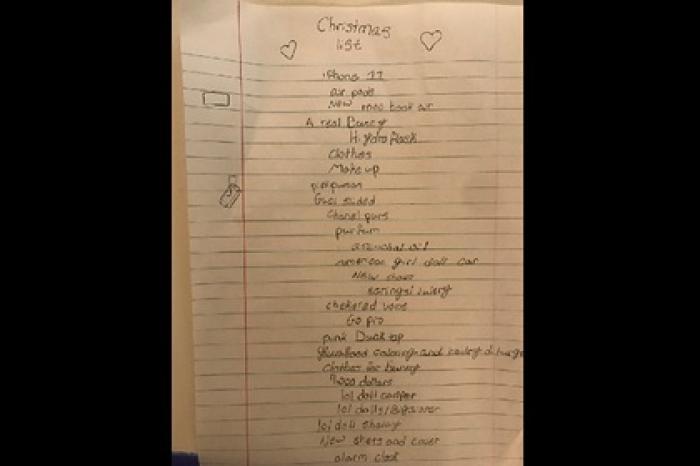 Christmas
list
iPhone 11
air pods
New mac book air
A real Bunny
Hydro flask
clothes
Make up
Gucci slides
Chanel purs
purfum
American girl doll car
New
chekered vans
Go pro
pink Duck tap
Clothes for bunny
4,000 dollars
lol doll camper
lol dolls/Bigsurpr
lol doll
New shets and cover
alarm clock